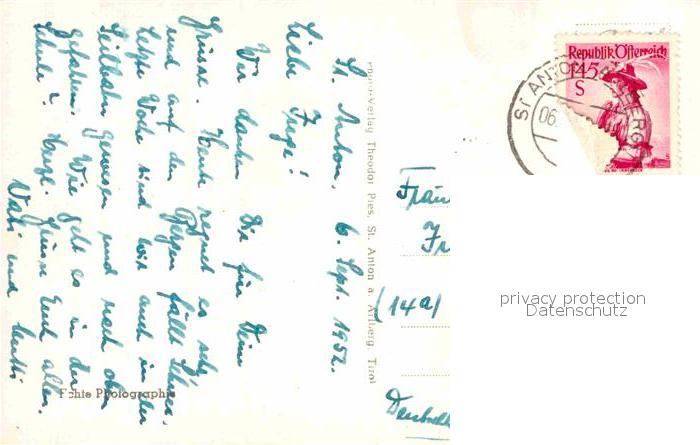 St. Anton, 6. Sept. 1952.
Liebe Inge!
Wir danken Dir für Deine
Grüsse. Heute regnet es sehr
und auf den Bergen fällt Schnee.
Letzte Woche sind wir auch in der
Seilbahn gewesen und nach oben
gefahren. Wie geht es in der
Schule? Herzl. Grüsse Euch allen.
Vati und Mutti
Echte Photographie
Verlag Theodor Pies, St. Anton a. Arlberg, Tirol
Republik Österreich
1.45
S
ST. ANTON
06.
Fräu
(14a)
privacy protection
Datenschutz